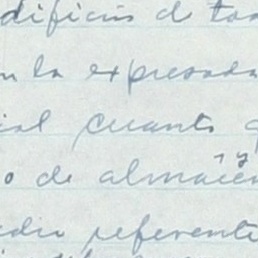 edificios de tod
en la expresada
cial cuanto q
o de almacén y
edia referente